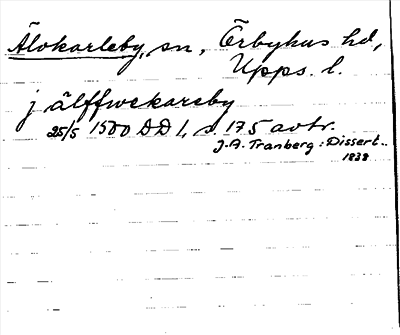 Älvkarleby, sn, Örbyhus hd,
Upps. l.
j älffwekareby
25/5 1500 DD 1, s. 175 avtr.
J.A. Tranberg: Dissert..
1832